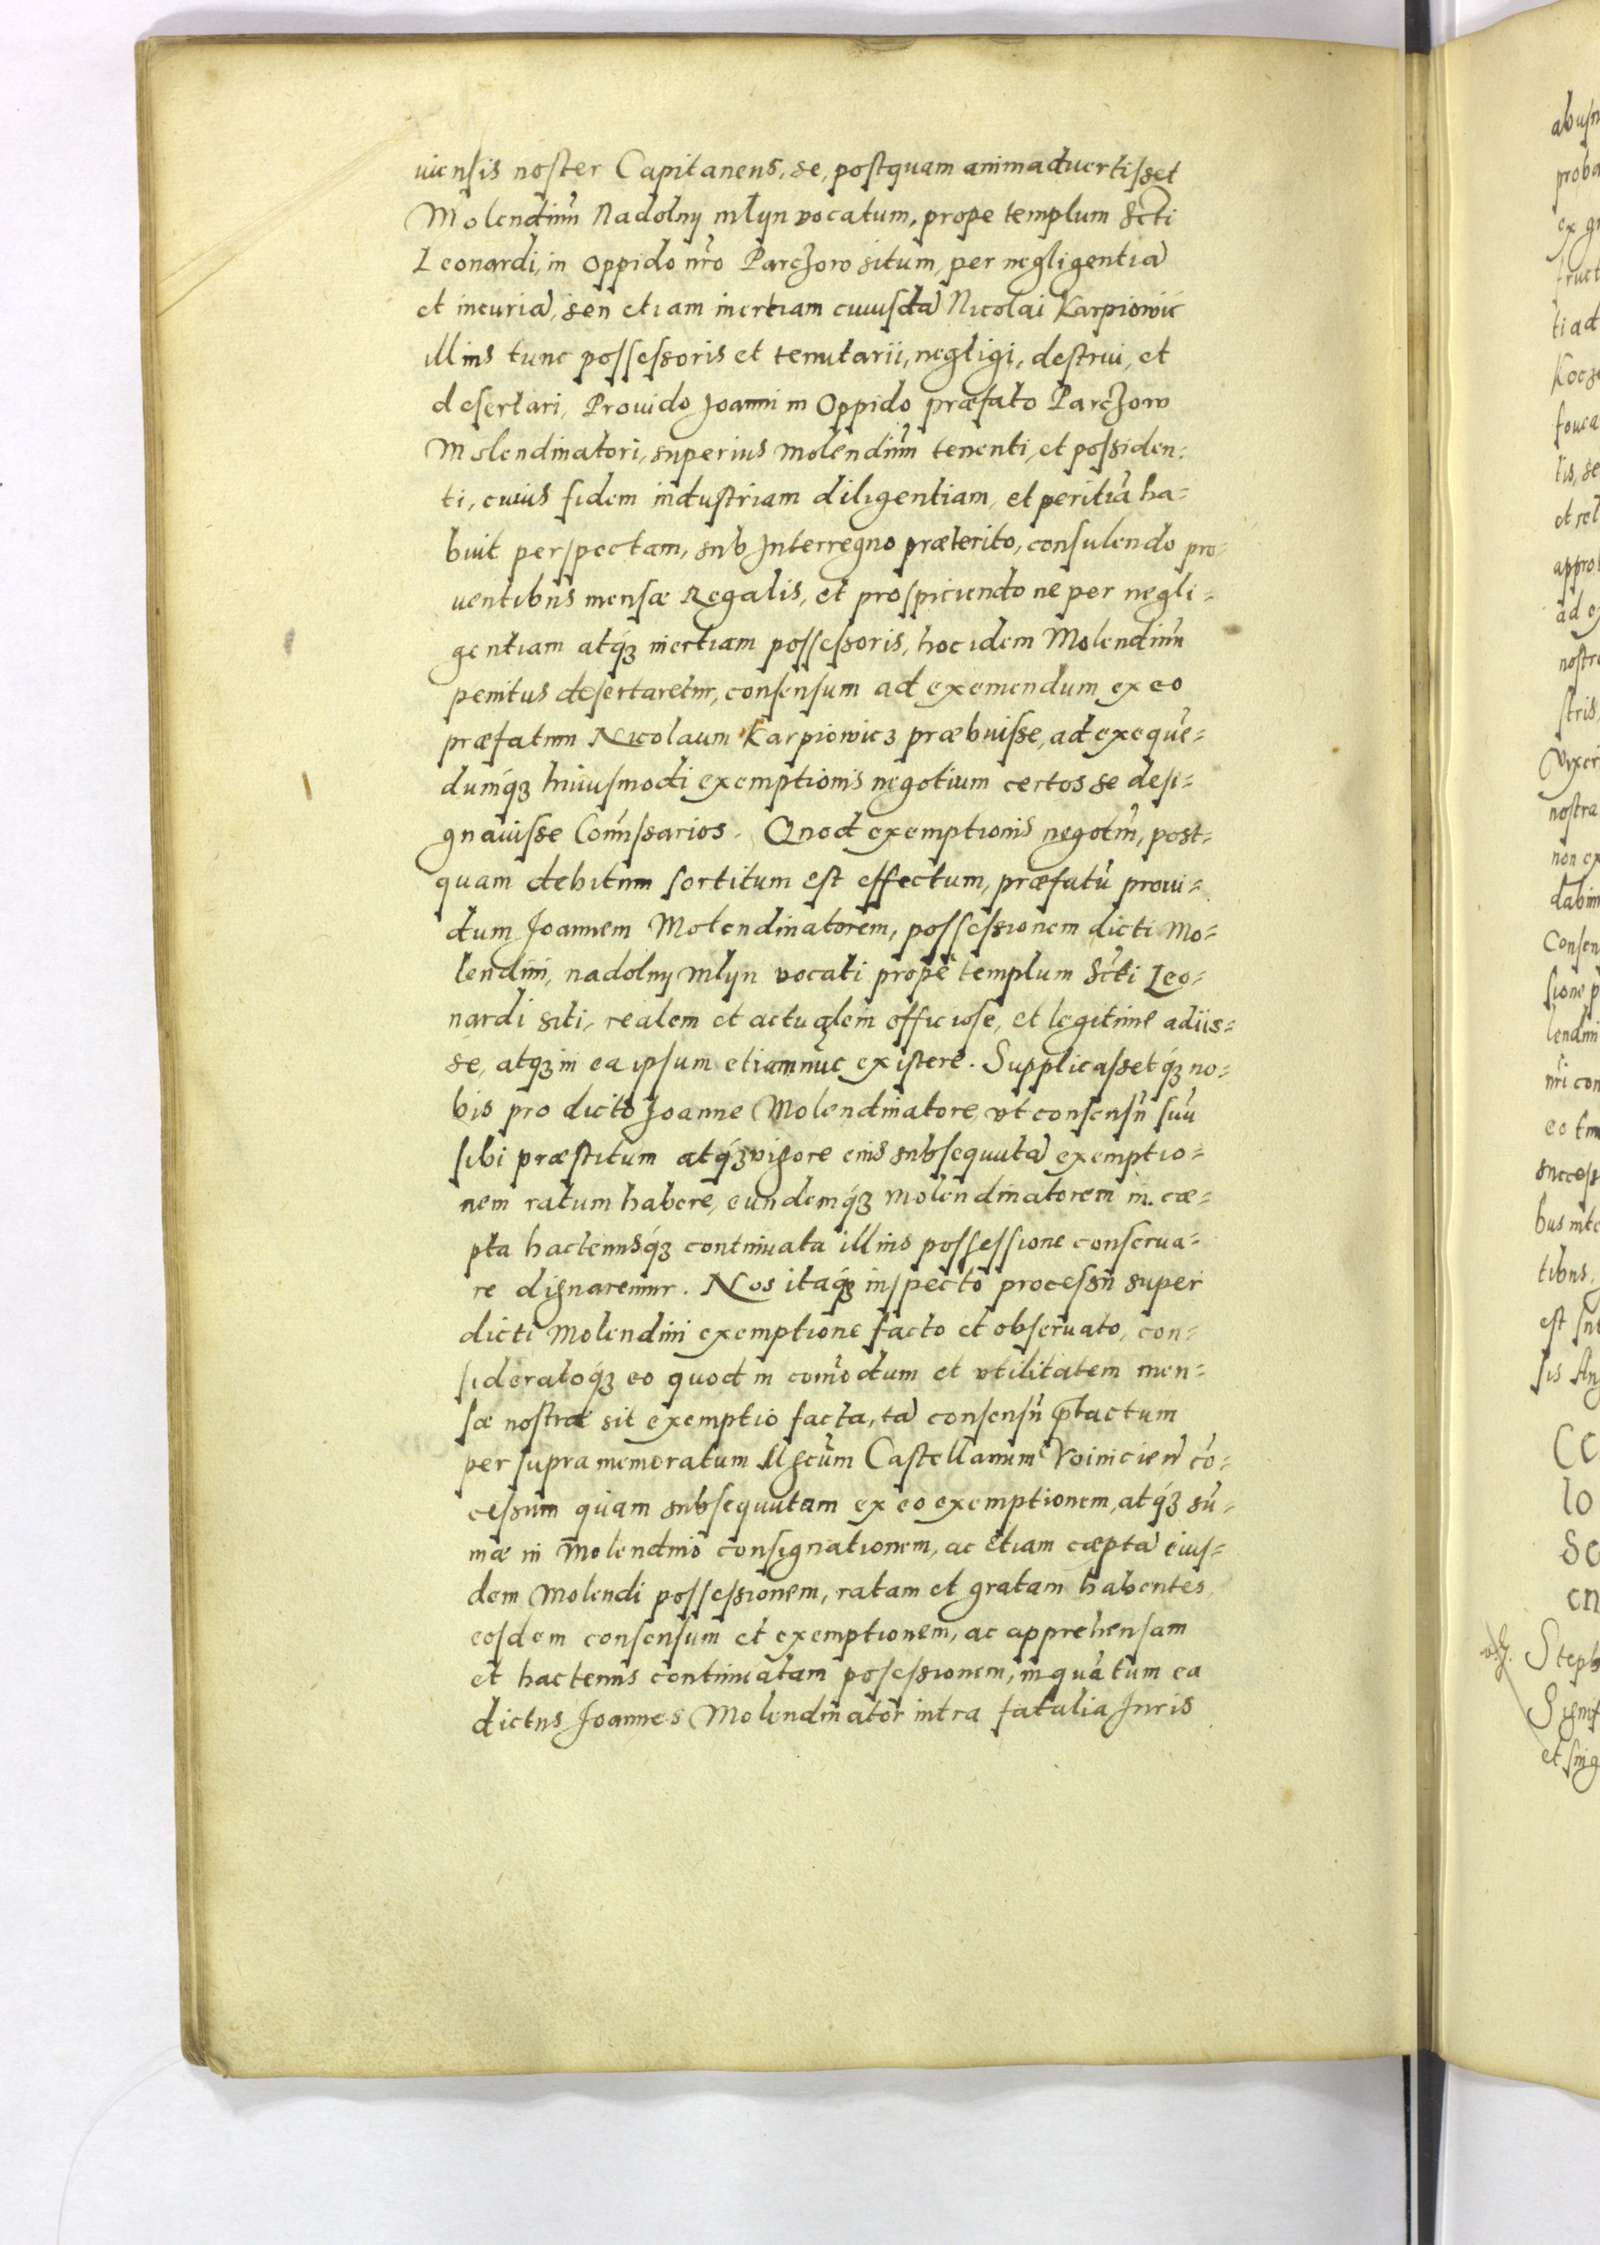 uiensis noster Capitaneus, se, postquam animaduertisset
Molendinũ Nadolny młyn vocatum, prope templum Scti
Leonardi, in Oppido nr̃o Parczow situm, per negligentiã
et incuriã, seu etiam inertiam cuiusdã Nicolai Karpiowic
illius tunc possessoris et tenutarii, negligi, destrui, et
desertari, Prouido Joanni in Oppido præfato Parczow
Molendinatori, superius molendinũ tenenti, et possiden:
ti, cuius fidem industriam diligentiam, et peritiã ha=
buit perspectam, sub Interregno præterito, consulendo pro=
uentibus mensæ Regalis, et prospiciendo ne per negli=
gentiam atq́ȝ inertiam possessoris, hoc idem Molendinũ
penitus desertaretur, consensum ad exemendum ex eo
præfatum Nicolaum Karpiowicz præbuisse, ad exequẽ=
dumq́ȝ huiusmodi exemptionis negotium certos se desi=
gnauisse Com̃issarios. Quod exemptionis negotiũ, post=
quam debitum sortitum est effectum, præfatũ proui=
dum Joannem Molendinatorem, possessionem dicti Mo=
lendini, nadolny młyn vocati propè templum Scti Leo=
nardi siti, realem et actualem officiose, et legitime adiis=
se, atqȝ in ea ipsum etiamnũc existere. Supplicassetq́ȝ no=
bis pro dicto Joanne Molendinatore, vt consensũ suũ
sibi præstitum atq́ȝ vigore eius subsequutã exemptio=
nem ratum habere, eundemq́ȝ molendinatorem in cæ=
pta hactenusq́ȝ continuata illius possessione conserua=
re dignaremur. Nos itaq́ȝ inspecto processũ super
dicti Molendini exemptione facto et obseruato, con=
sideratoq́ȝ eo quod in com̃odum et vtilitatem men=
sæ nostræ sit exemptio facta, tã consensũ p̃tactum
per supra memoratum Mgcũm Castellanum Voiniciеñ cõ=
cessum quam subsequutam ex eo exemptionem, atq́ȝ sũ=
mæ in Molendino consignationem, ac etiam cæptã eius=
dem Molendi possessionem, ratam et gratam habentes
eosdem consensum et exemptionem, ac apprehensam
et hactenus continuatam posessionem, in quãtum ea
dictus Joannes Molendinator intra fatalia Juris